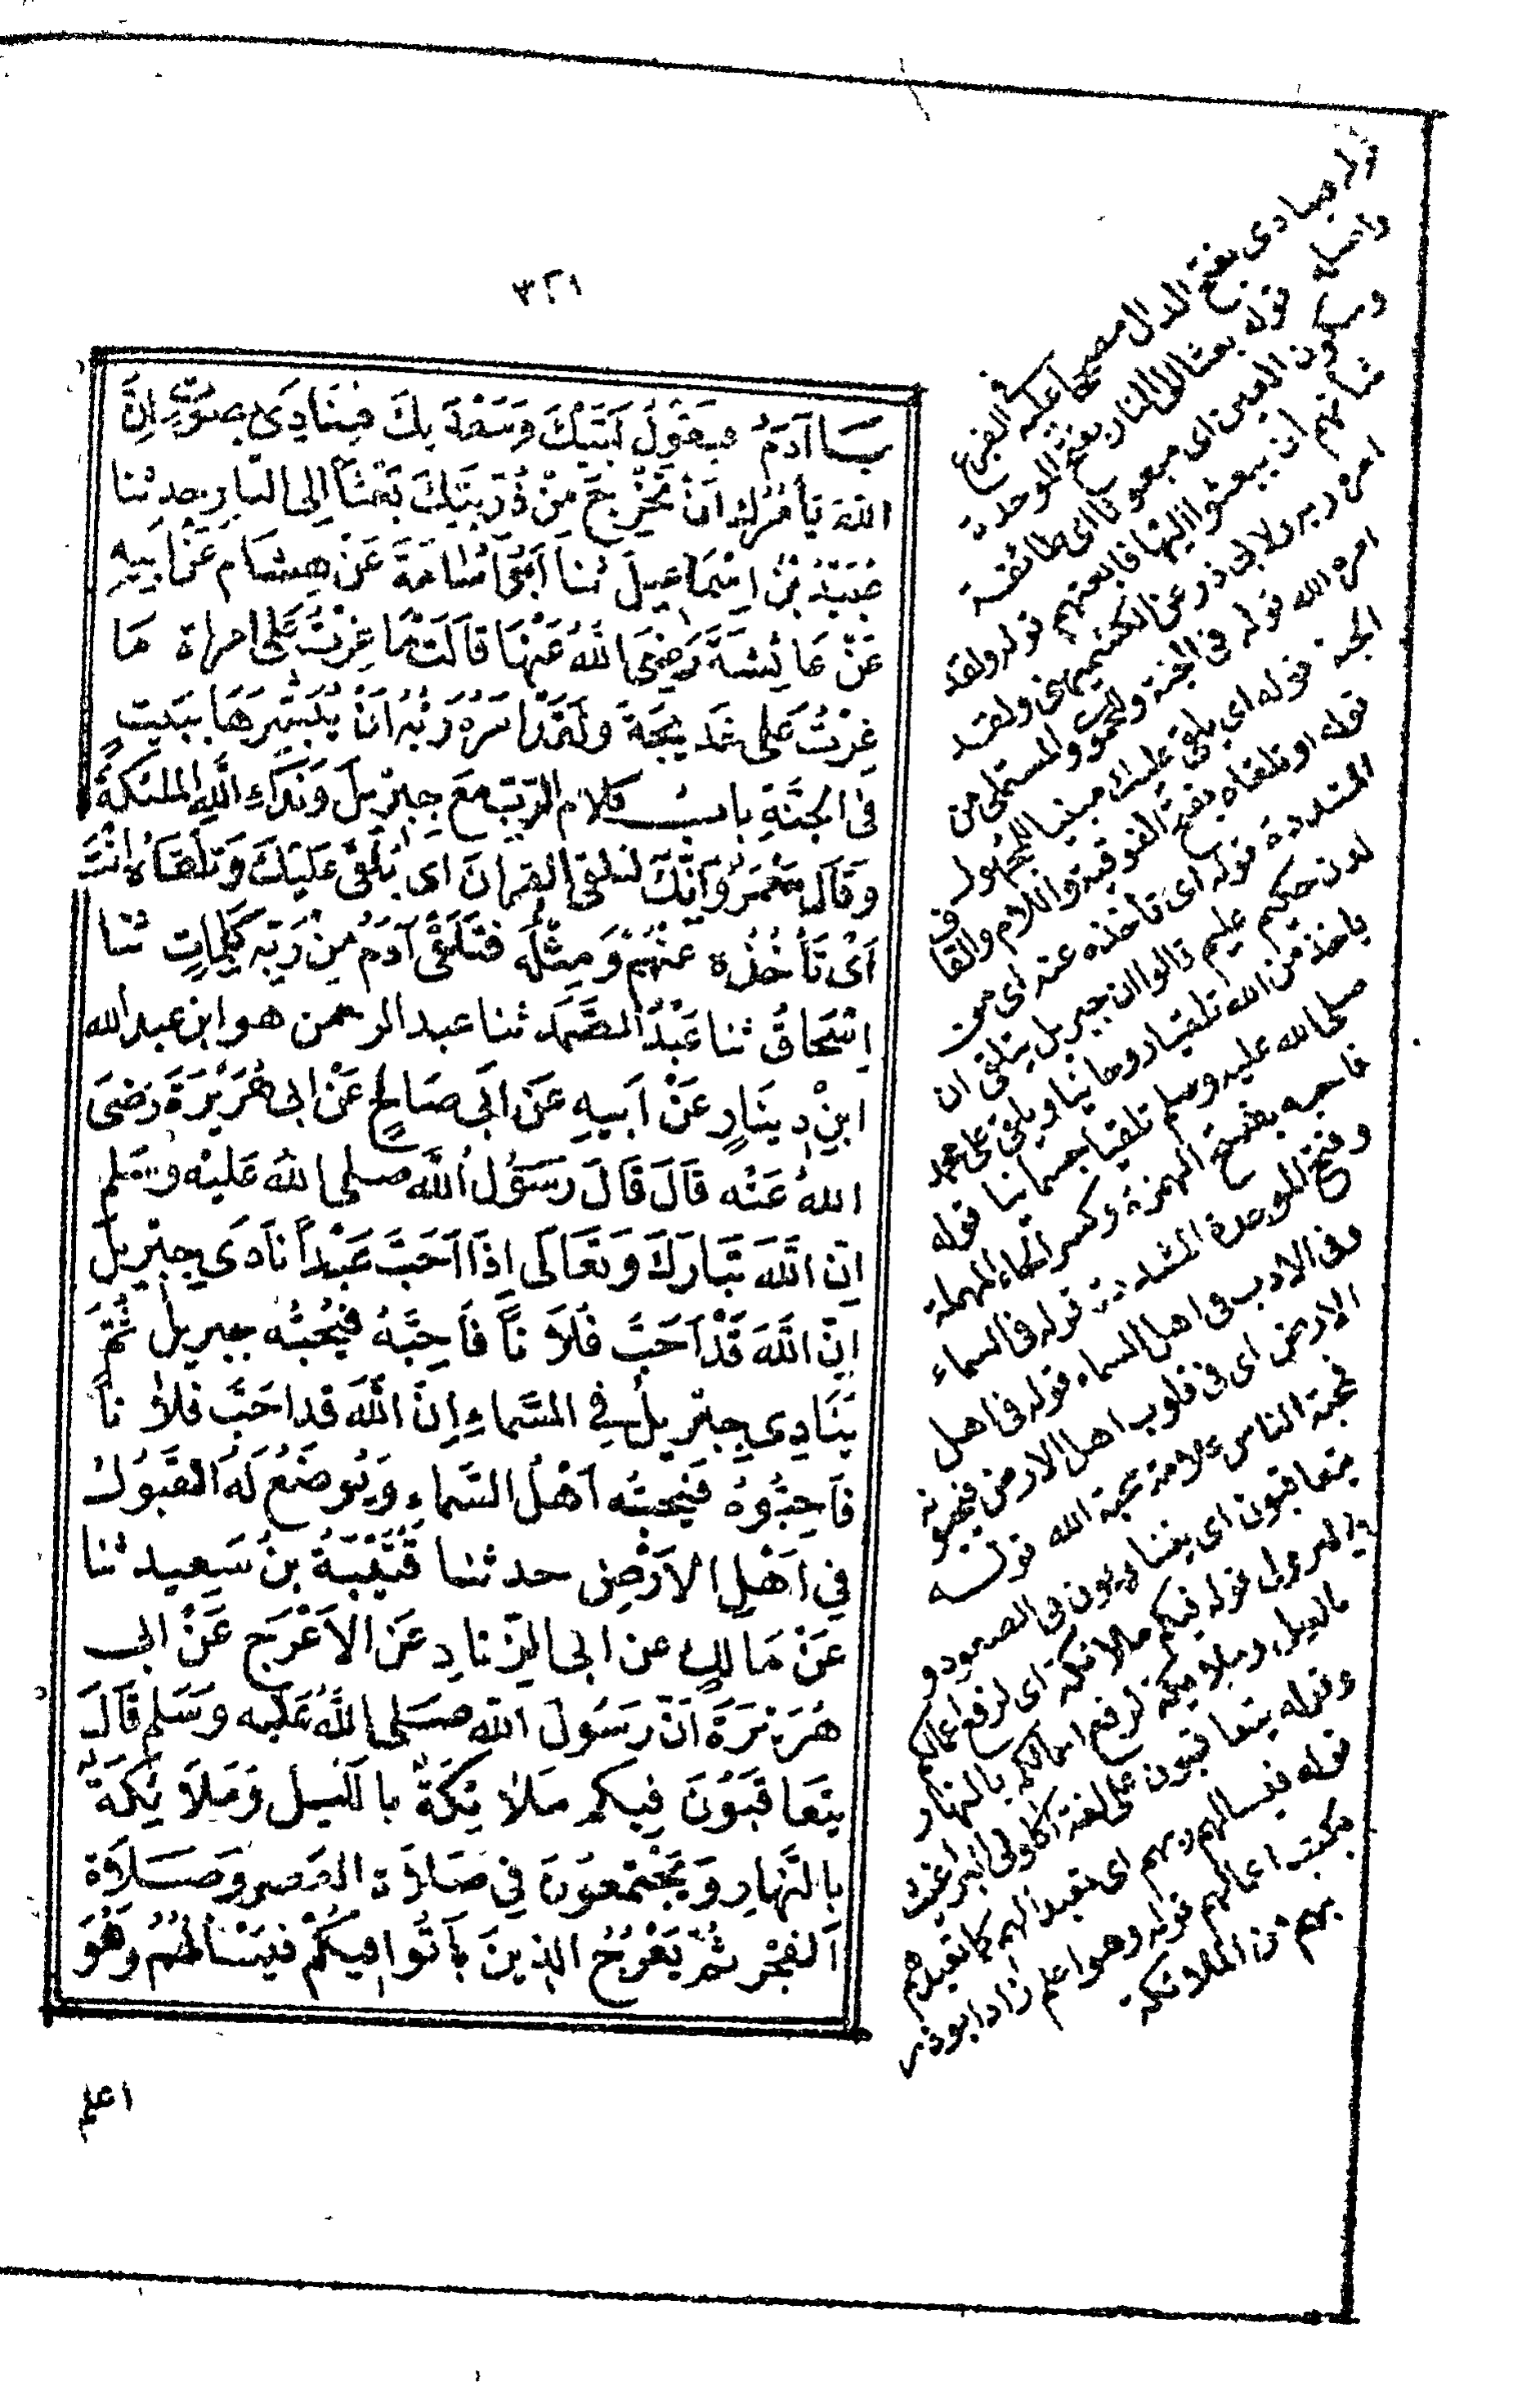 ٣٢١
يَا آدَمُ فَيَقُولُ لَبَّيْكَ وَسَعْدَيْكَ فَيُنَادِى بِصَوْتٍ اِنَّ
اللهَ يَأْمُرُكَ اَنْ تُخْرِجَ مِنْ ذُرِّيَتِكَ بَعْثًا اِلَى النَّارِ حدثنا
عُبَيْدُ بْنُ اِسْمَاعِيلَ ثنا اَبُو اُسَامَةَ عَنْ هِشَامٍ عَنْ اَبِيهِ
عَنْ عَائِشَةَ رَضِىَ اللهُ عَنْهَا قَالَتْ مَا غِرْتُ عَلَى امراة مَا
غِرْتُ عَلَى خَدِيجَةَ وَلَقَدْ اَمَرَهُ رَبُّهُ اَنْ يُبَشِّرَهَا بِبَيْتٍ
فِى الْجَنَّةِ باب كلام الرَّبِّ مَعَ جِبْرِيلَ وَنِدَاءِ اللهِ الملئكة
وَقَالَ مَعْمَرٌ وَاِنَّكَ لتلقى القرآن اى يُلْقَى عَلَيْكَ وَتَلَقَّاهُ اَنْتَ
اَىْ تَأْخُذُهُ عَنْهُمْ وَمِثْلُهُ فَتَلَقَّى آدَمُ مِنْ رَبِّهِ كَلِمَاتٍ ثنا
اِسْحَاقُ ثنا عَبْدُ الصَّمَدِ ثنا عبد الرحمن هو ابن عبد الله
ابْنِ دِينَارٍ عَنْ اَبِيهِ عَنْ اَبِى صَالِحٍ عَنْ اَبِى هُرَيْرَةَ رَضِىَ
اللهُ عَنْه قَالَ قَالَ رَسُولُ اللهِ صلى اللهُ عَلَيْه وَسَلم
اِنَّ اللهَ تَبَارَكَ وَتَعَالَى اِذَا اَحَبَّ عَبْداً نَادَى جِبْرِيلَ
اِنَّ اللهَ قَدْ اَحَبَّ فُلَانًا فَاَحِبَّهُ فَيُحِبُّه جبريل ثُمَّ
يُنَادِى جِبْرِيلُ فِى السَّمَاءِ اِنَّ اللهَ قد اَحَبَّ فُلَانًا
فَاَحِبُّوهُ فَيُحِبُّه اَهْلُ السَّمَاءِ وَيُوضَعُ لَهُ القَبُولُ
فِى اَهْلِ الاَرْضِ حدثنا قُتَيْبَةُ بنُ سَعِيد ثنا
عَنْ مَالِكٍ عن ابى الزِّنَادِ عَنِ الاَعْرَجِ عَنْ ابى
هُرَيْرَةَ اَنَّ رَسُولَ اللهِ صَلى اللهُ عَلَيه وَسَلم قَالَ
يَتَعَاقَبُونَ فِيكم مَلَائِكَةٌ بِاللَّيْلِ وَمَلَائِكَةٌ
بِالنَّهَارِ وَيَجْتَمِعُونَ فِى صَلَاةِ العَصرِ وَصَلَاةِ
الفَجْرِ ثُمَّ يَعْرُجُ الذِينَ بَاتُوا فِيكُمْ فَيَسْأَلُهُمْ وَهُوَ
اعلم
قوله فينادى بفتح الدال مصححا عليه فى الفرع
واصله قوله بعثا الى النار بفتح الموحدة
وسكون العين اى مبعوثا اى طائفة
شانهم ان يبعثوا اليها فابعثهم قوله ولقد
امره ربه ولابى ذر عن الكشميهنى ولقد
امره الله قوله فى الجنة وللحموى والمستملى من
الجنة قوله اى يلقى عليك مبنيا للمجهول
قوله او تلقاه بفتح الفوقية واللام والقاف
المشددة قوله اى تاخذه عنه اى من
لدن حكيم عليم قالوا ان جبريل يتلقى اى
ياخذ من الله تلقيا روحانيا ويلقى على محمد
صلى الله عليه وسلم تلقيا جسمانيا قوله
فاحبه بفتح الهمزة وكسر الحاء المهملة
وفتح الموحدة المشددة قوله فى السماء
وفى الادب فى اهل السماء قوله فى اهل
الارض اى فى قلوب اهل الارض فيحبونه
فمحبة الناس علامة محبة الله قوله
يتعاقبون اى يتناوبون فى الصعود و
قوله فيكم ملائكة اى لرفع اعمالكم
بالليل وملائكة لرفع اعمالكم بالنهار
وقوله يتعاقبون على لغة اكلونى البراغيث
قوله فيسالهم ربهم اى تعبدا لهم كما تعبدهم
بكتب اعمالهم قوله وهو اعلم زاد ابو ذر
بهم من الملائكة